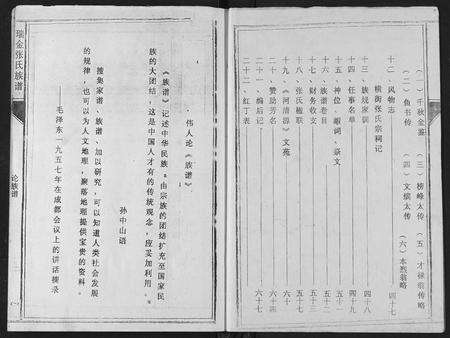 (一)千秋金鉴 (三)榜峰太传 (五)才禄翁传略
(二)鱼书传 (四)文槟太传 (六)本烈翁略
十二、风物志 四十七
横街张氏宗祠记
十三、族规家训 四十八
十四、任事名单 四十九
十五、神位、醮词、祭文 五十一
十六、族谱卷目 五十二
十七、财务收支 五十三
十八、张氏楹联
十九、《河清源》文苑 六十
二十、赞助芳名 六十四
二十一、编后记 六十七
二十二、红丁表
·伟人论《族谱》·
《族谱》记述中华民族。由宗族的团结扩充至国家民
族的大团结,这是中国人才有的传统观念,应妥加利用。
孙中山语
搜集家谱、族谱、加以研究,可以知道人类社会发展
的规律,也可以为人文地理,聚落地理提供宝贵的资料。
——毛泽东一九五七年在成都会议上的讲话摘录
瑞金张氏族谱
论族谱